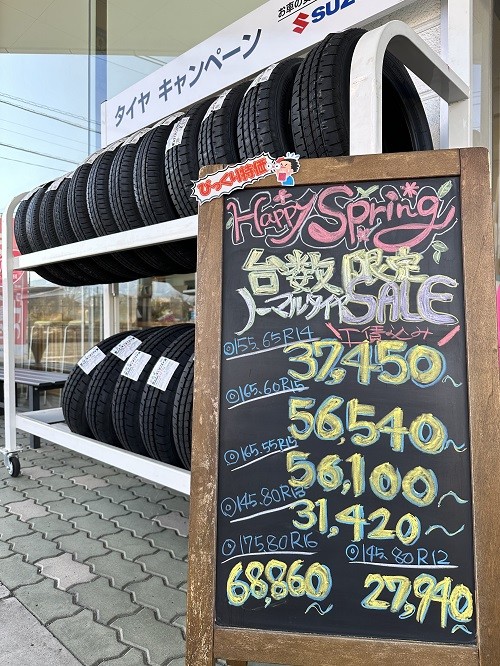 お車の
SUZ
タイヤ キャンペーン
びっくり特価
Happy Spring
台数 限定
ノーマルタイヤ SALE
工賃込み
◎155.65R14
37,450～
◎165.60R15
56,540～
◎165.55R15
56,100～
◎145.80R13
31,420～
◎175.80R16
68,860～
◎145.80R12
27,940～